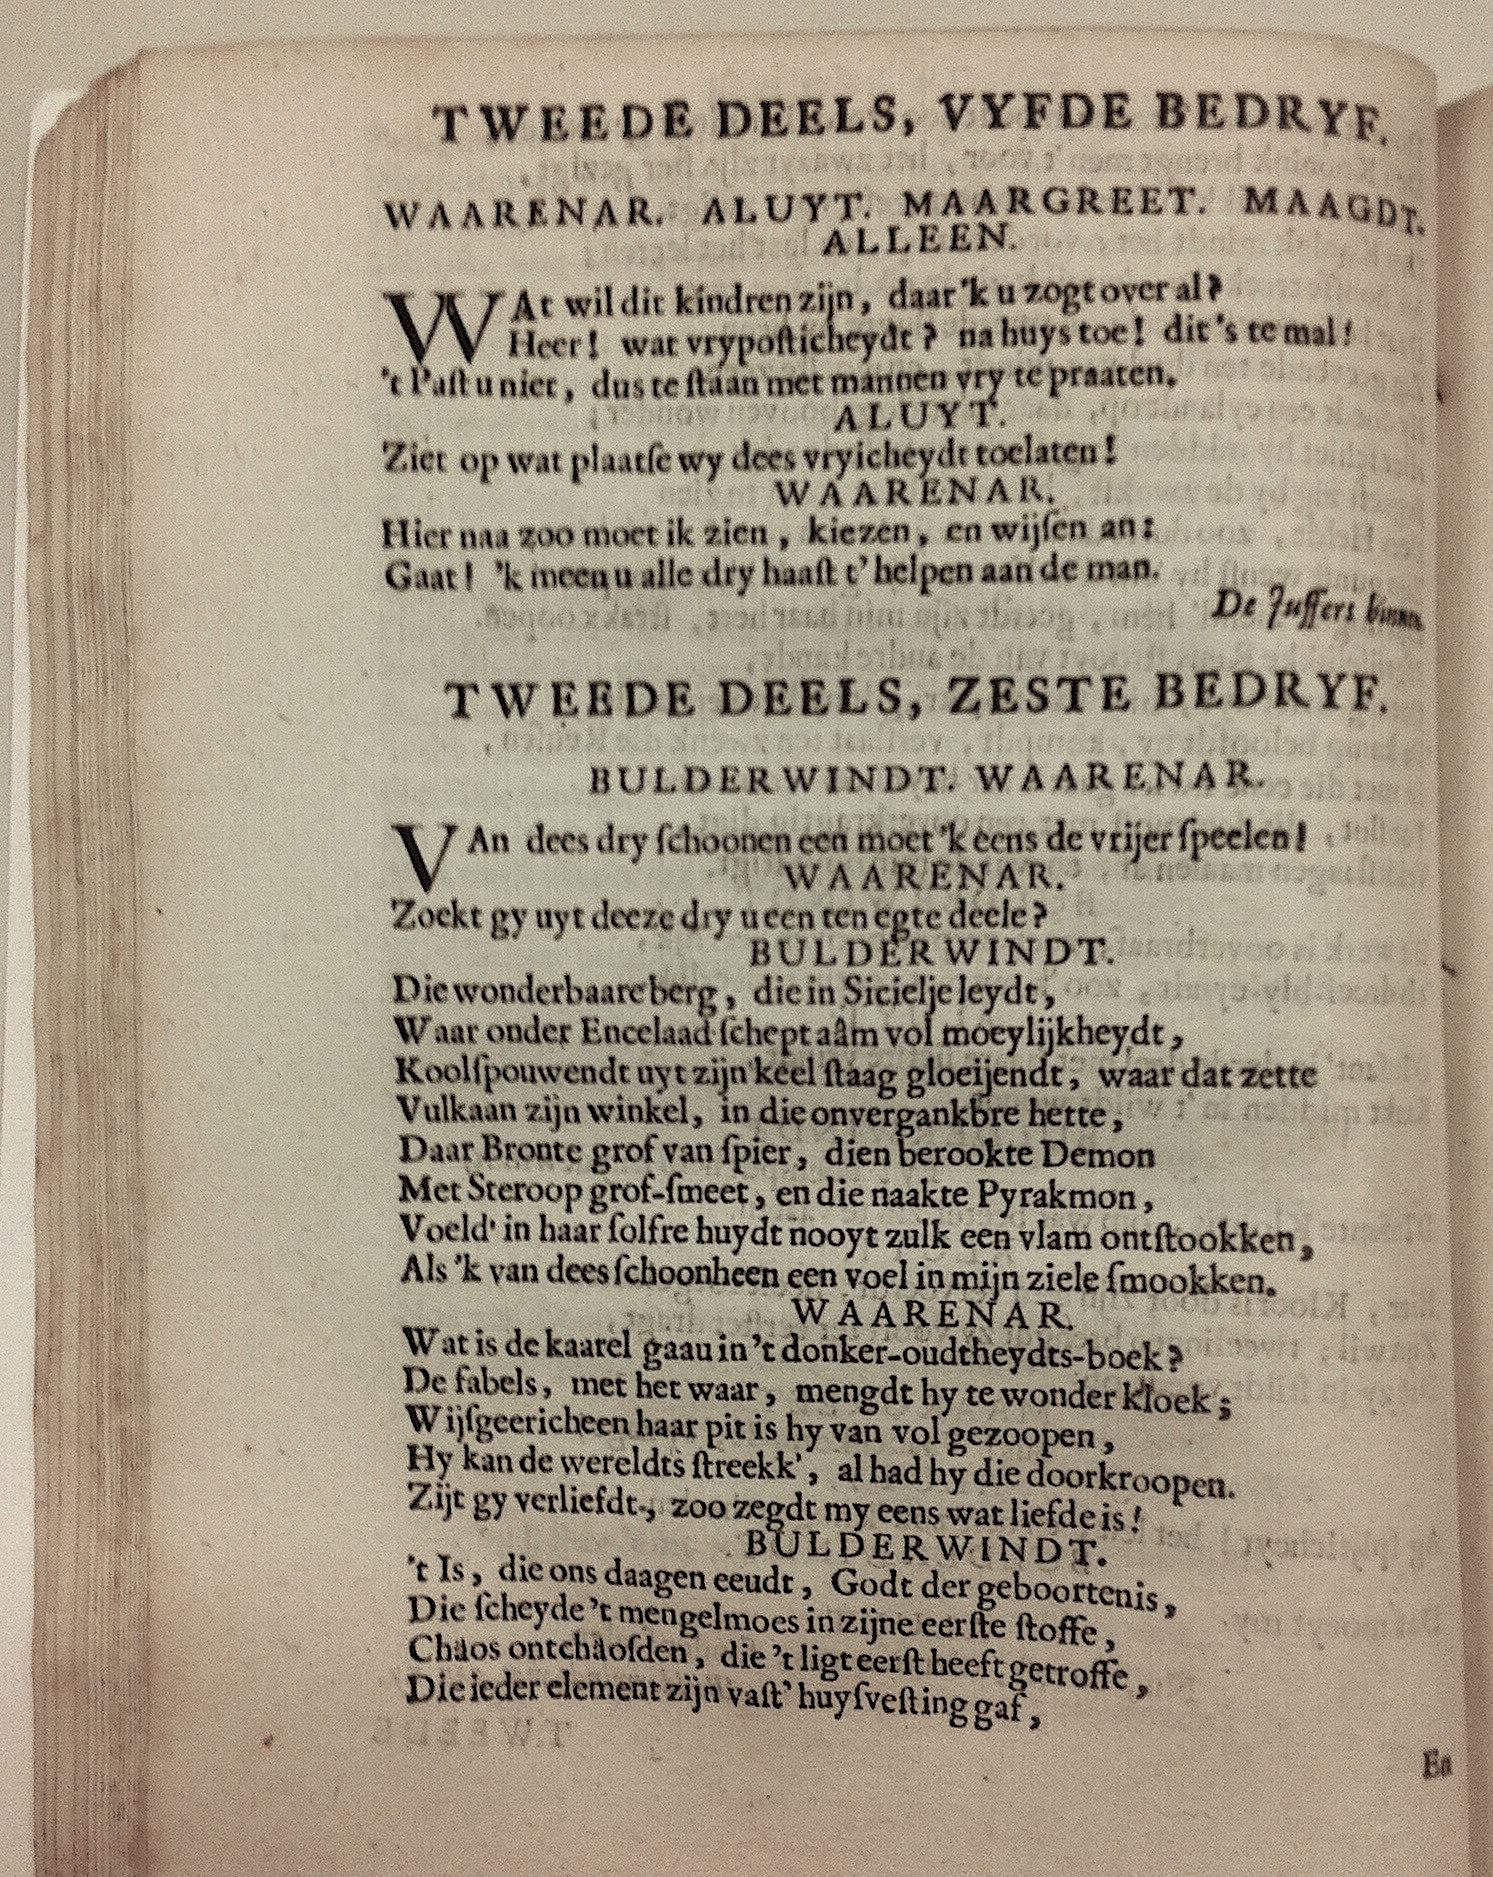 TWEEDE DEELS, VYFDE BEDRYF.
WAARENAR. ALUYT. MAARGREET. MAAGDT.
ALLEEN.
WAt wil dit kindren zijn, daar 'k u zogt over al?
Heer! wat vrypoſticheydt? na huys toe! dit 's te mal!
't Paſt u niet, dus te ſtaan met mannen vry te praaten.
ALUYT.
Ziet op wat plaatſe wy dees vryicheydt toelaten!
WAARENAR.
Hier naa zoo moet ik zien, kiezen, en wijſen an:
Gaat! 'k meen u alle dry haaſt t' helpen aan de man.
De Juffers binnen.
TWEEDE DEELS, ZESTE BEDRYF.
BULDERWINDT. WAARENAR.
VAn dees dry ſchoonen een moet 'k eens de vrijer ſpeelen!
WAARENAR.
Zoekt gy uyt deeze dry u een ten egte deele?
BULDERWINDT.
Die wonderbaare berg, die in Sicielje leydt,
Waar onder Encelaad ſchept aâm vol moeylijkheydt,
Koolſpouwendt uyt zijn keel ſtaag gloeijendt, waar dat zette
Vulkaan zijn winkel, in die onvergankbre hette,
Daar Bronte grof van ſpier, dien berookte Demon
Met Steroop grof-ſmeet, en die naakte Pyrakmon,
Voeld' in haar ſolfre huydt nooyt zulk een vlam ontſtookken,
Als 'k van dees ſchoonheen een voel in mijn ziele ſmookken.
WAARENAR.
Wat is de kaarel gaau in 't donker-oudtheydts-boek?
De fabels, met het waar, mengdt hy te wonder kloek;
Wijſgeericheen haar pit is hy van vol gezoopen,
Hy kan de wereldts ſtreekk', al had hy die doorkroopen.
Zijt gy verliefdt, zoo zegdt my eens wat liefde is!
BULDERWINDT.
't Is, die ons daagen eeudt, Godt der geboortenis,
Die ſcheyde 't mengelmoes in zijne eerſte ſtoffe,
Chäos ontchäoſden, die 't ligt eerſt heeft getroffe,
Die ieder element zijn vaſt' huyſveſting gaf,
En